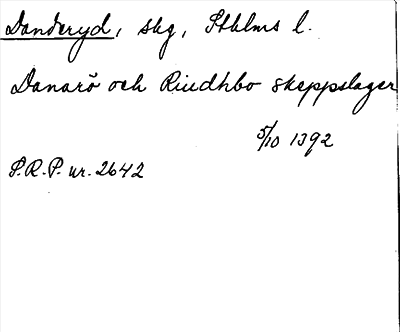 Danderyd, skg, Sthlms l.
Danarö och Rindhbo skeppslager
5/10 1392
S.R.P. nr. 2642